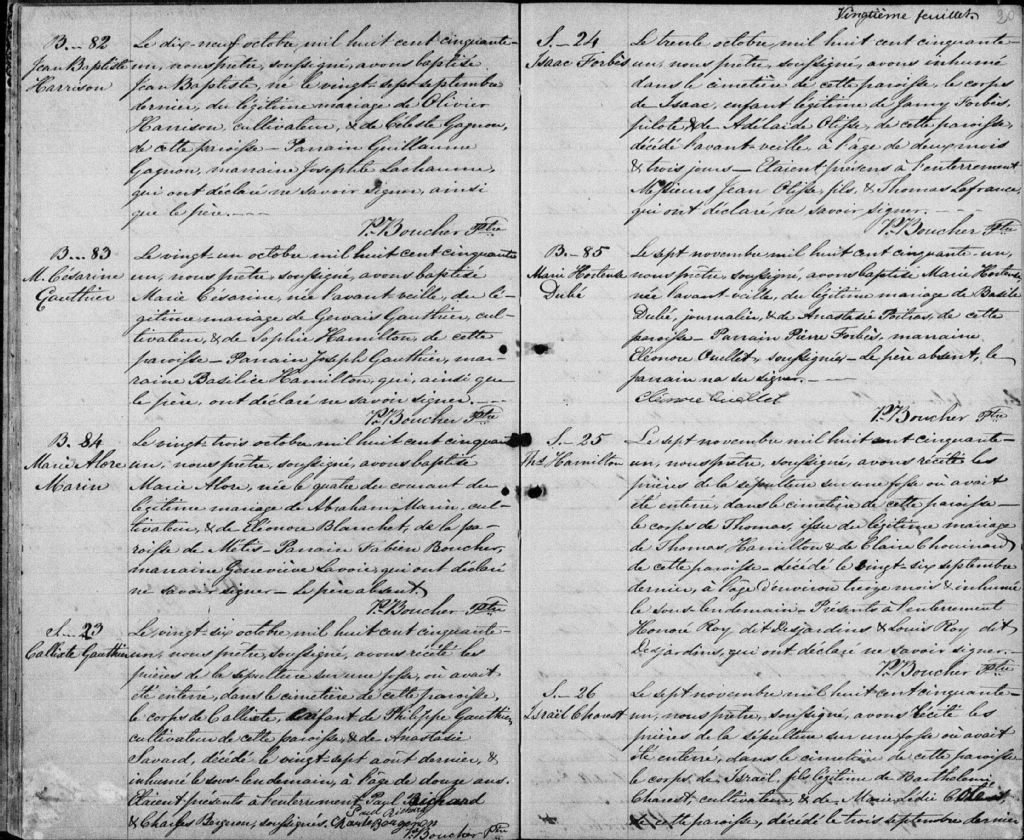 B... 82
Jean Baptiste
Harrison
Le dix-neuf octobre mil huit cent cinquante-
un, nous prêtre, soussigné, avons baptisé
Jean Baptiste, né le vingt-sept septembre
dernier, du légitime mariage de Olivier
Harrison, cultivateur, & de Céleste Gagnon,
de cette paroisse - Parrain Guillaume
Gagnon, marraine Josephte Lachaume,
qui ont déclaré ne savoir signer, ainsi
que le père. - - -
P. Boucher Ptre
B... 83
M. Césarine
Gauthier
Le vingt-un octobre mil huit cent cinquante
un, nous prêtre, soussigné, avons baptisé
Marie Césarine, née l'avant veille, du lé-
gitime mariage de Gervais Gauthier, cul-
tivateur, & de Sophie Hamilton, de cette
paroisse - Parrain Joseph Gauthier, mar-
raine Basilice Hamilton, qui, ainsi que
le père, ont déclaré ne savoir signer. -
P. Boucher Ptre
B. 84
Marie Alore
Marin
Le vingt-trois octobre mil huit cent cinquante
un, nous prêtre, soussigné, avons baptisé
Marie Alore, née le quatre du courant du
légitime mariage de Abraham Marin, cul-
tivateur, & de Eléonore Blanchet, de la pa-
roisse de Métis - Parrain Fabien Boucher,
marraine Geneviève Savoie, qui ont déclaré
ne savoir signer - Le père absent.
P. Boucher Ptre
S... 23
Calliste Gauthier
Le vingt-six octobre mil huit cent cinquante-
un, nous prêtre, soussigné, avons récité les
prières de la sépulture sur une fosse, où avait
été enterré, dans le cimetière de cette paroisse,
le corps de Calliste, enfant de Philippe Gauthier,
cultivateur de cette paroisse, & de Anastasie
Savard, décédé le vingt-sept août dernier, &
inhumé le sous-lendemain, à l'age de douze ans.
Etaient présents à l'enterrement Paul
& Charles Bergeron, soussignés.
Charle Bergeron
P. Boucher Ptre
Vingtième feuillet.
20
S. - 24
Isaac Forbès
Le trente octobre, mil huit cent cinquante-
un, nous prêtre, soussigné, avons inhumé
dans le cimetière de cette paroisse, le corps
de Isaac, enfant légitime de Jamy Forbès,
pilote, & de Adélaïde Otisse, de cette paroisse,
décédé l'avant-veille, à l'age de deux mois
& trois jours - Etaient présens à l'enterrement
Messieurs Jean Otisse, fils, & Thomas Lafrance,
qui ont déclaré ne savoir signer. - -
P. Boucher Ptre
B. - 85
Marie Hortense
Dubé
Le sept novembre mil huit cent cinquante-un,
nous prêtre, soussigné, avons baptisé Marie Hortense
née l'avant-veille, du légitime mariage de Basile
Dubé, journalier, & de Anastasie Patras, de cette
paroisse - Parrain Pierre Forbès, marraine
Eléonore Ouellet, soussignés - Le père absent, le
parrain n'a su signer. - -
Eléonore Ouellet
P. Boucher Ptre
S. - 25
Ths. Hamilton
Le sept novembre mil huit cent cinquante-
un, nous prêtre, soussigné, avons récité les
prières de la sépulture sur une fosse où avait
été enterré, dans le cimetière de cette paroisse -
le corps de Thomas, issu de légitime mariage
de Thomas Hamilton & de Claire Chouinard
de cette paroisse - décédé le vingt-six septembre
dernier, à l'age d'environ treize mois & inhumé
le sous-lendemain - Présents à l'enterrement
Honoré Roy dit Desjardins & Louis Roy dit
Desjardins, qui ont déclaré ne savoir signer. -
P. Boucher Ptre
S. - 26
Israël Charest
Le sept novembre mil huit cent cinquante-
un, nous prêtre, soussigné, avons récité les
prières de la sépulture sur une fosse où avait
été enterré, dans le cimetière de cette paroisse
le corps de Israël, fils légitime de Barthelemi
Charest, cultivateur, & de Marie
de cette paroisse, décédé le trois septembre dernier